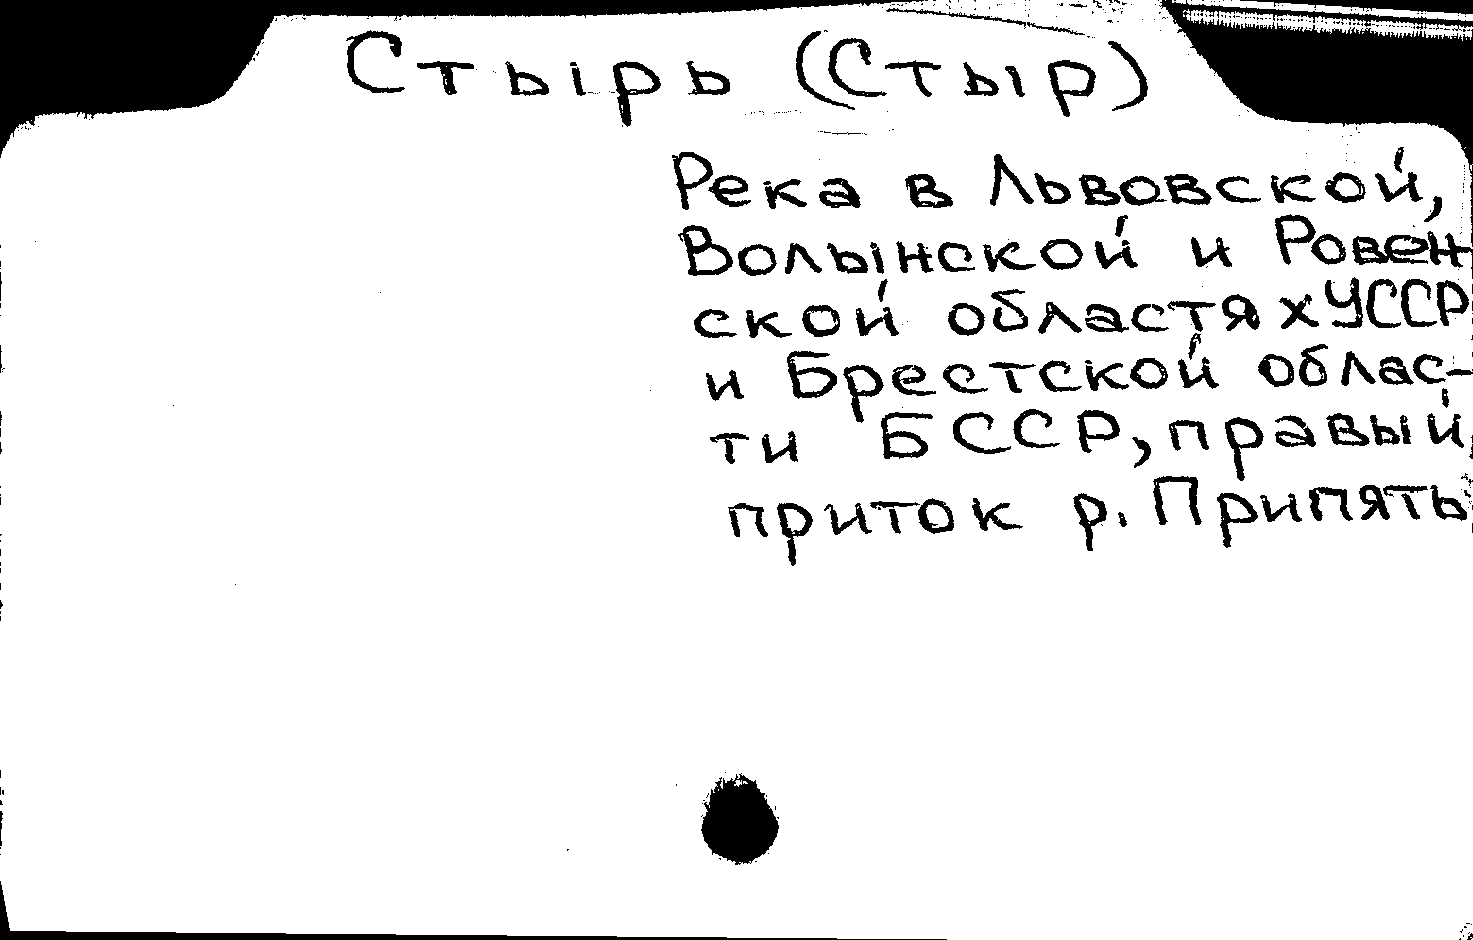 Стырь (Стыр)
Река в Львовской,
Волынской и Ровен-
ской областях УССР
и Брестской облас-
ти БССР, правый
приток р. Припять